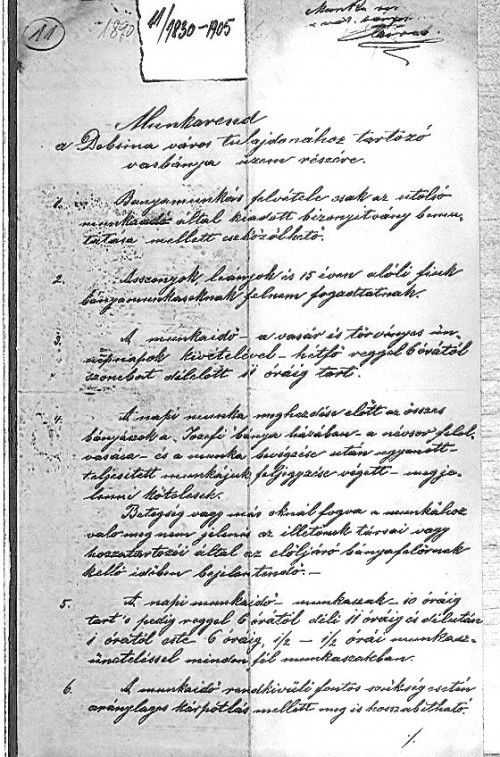 11
1890
11/1830-1905
Munkarend
a Dobsina város tulajdonához tartozó
vasbánya üzem részére.
1. Bányamunkás felvétele csak az utolsó
munkaadó által kiadott bizonyitvány bemu-
tatása mellett eszközölhető.
2. Asszonyok leanyok és 15 éven alóli fiuk
bányamunkásoknak felnem fogadtatnak.
3. A munkaidő - a vasár és törvényes ün-
nepnapok kivételével - hétfő reggel 6 órától
szombat délelőtt 11 óráig tart.
4. A napi munka meghezdése előtt az összes
bányászok a "Jozefi" bánya házában - a névsor felol-
vasása - és a munka bevégzése után ugyanott -
teljesitett munkájuk feljegyzése végett - megje-
lenni kötelesek.
Betegség vagy más oknál fogva a munkához
való meg nem jelenés az illetőnek társai vagy
hozzátartozói által az előljáró bányafelőrnek
kellő időben bejelentendő. -
5. A napi munkaidő - munkaszak - 10 óráig
tart s pedig reggel 6 órától déli 11 óráig és délután
1 órától este 6 óráig, 1/2 - 1/2 órai munkasz-
üneteléssel minden fél munkaszakban.
6. A munkaidő rendkivüli fontos szükség esetén
aránylagos kárpótlás mellett meg is hosszabitható.
./.